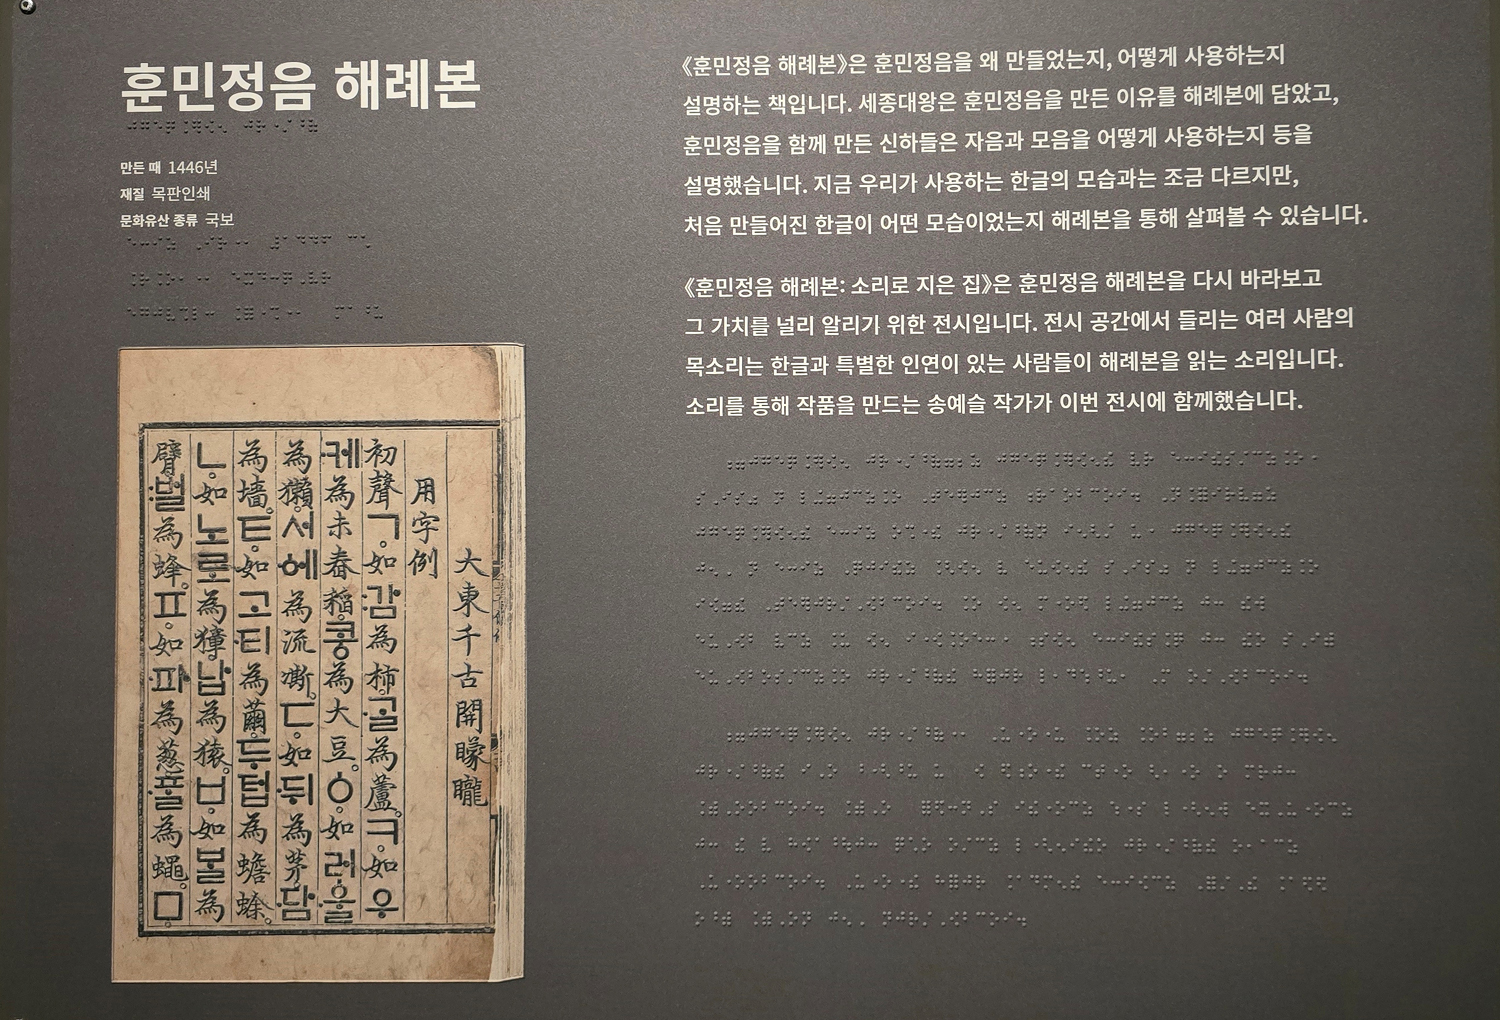 훈민정음 해례본
만든 때 1446년
재질 목판인쇄
문화유산 종류 국보
《훈민정음 해례본》은 훈민정음을 왜 만들었는지, 어떻게 사용하는지
설명하는 책입니다. 세종대왕은 훈민정음을 만든 이유를 해례본에 담았고,
훈민정음을 함께 만든 신하들은 자음과 모음을 어떻게 사용하는지 등을
설명했습니다. 지금 우리가 사용하는 한글의 모습과는 조금 다르지만,
처음 만들어진 한글이 어떤 모습이었는지 해례본을 통해 살펴볼 수 있습니다.
《훈민정음 해례본: 소리로 지은 집》은 훈민정음 해례본을 다시 바라보고
그 가치를 널리 알리기 위한 전시입니다. 전시 공간에서 들리는 여러 사람의
목소리는 한글과 특별한 인연이 있는 사람들이 해례본을 읽는 소리입니다.
소리를 통해 작품을 만드는 송예슬 작가가 이번 전시에 함께했습니다.
大東千古開矇矓
用字例
初聲ㄱ。如:감為柿。·ᄀᆞᆯ為蘆。ㅋ。如우
·케為未舂稻。콩為大豆。ㆁ。如러·울
為獺。서·에為流凘。ㄷ。如·뒤為茅。·담
為墻。ㅌ。如고·티為繭。두텁為蟾蜍。
ㄴ。如노로為獐。납為猿。ㅂ。如ᄇᆞᆯ為
臂。:벌為蜂。ㅍ。如·파為葱。·ᄑᆞᆯ為蠅。ㅁ